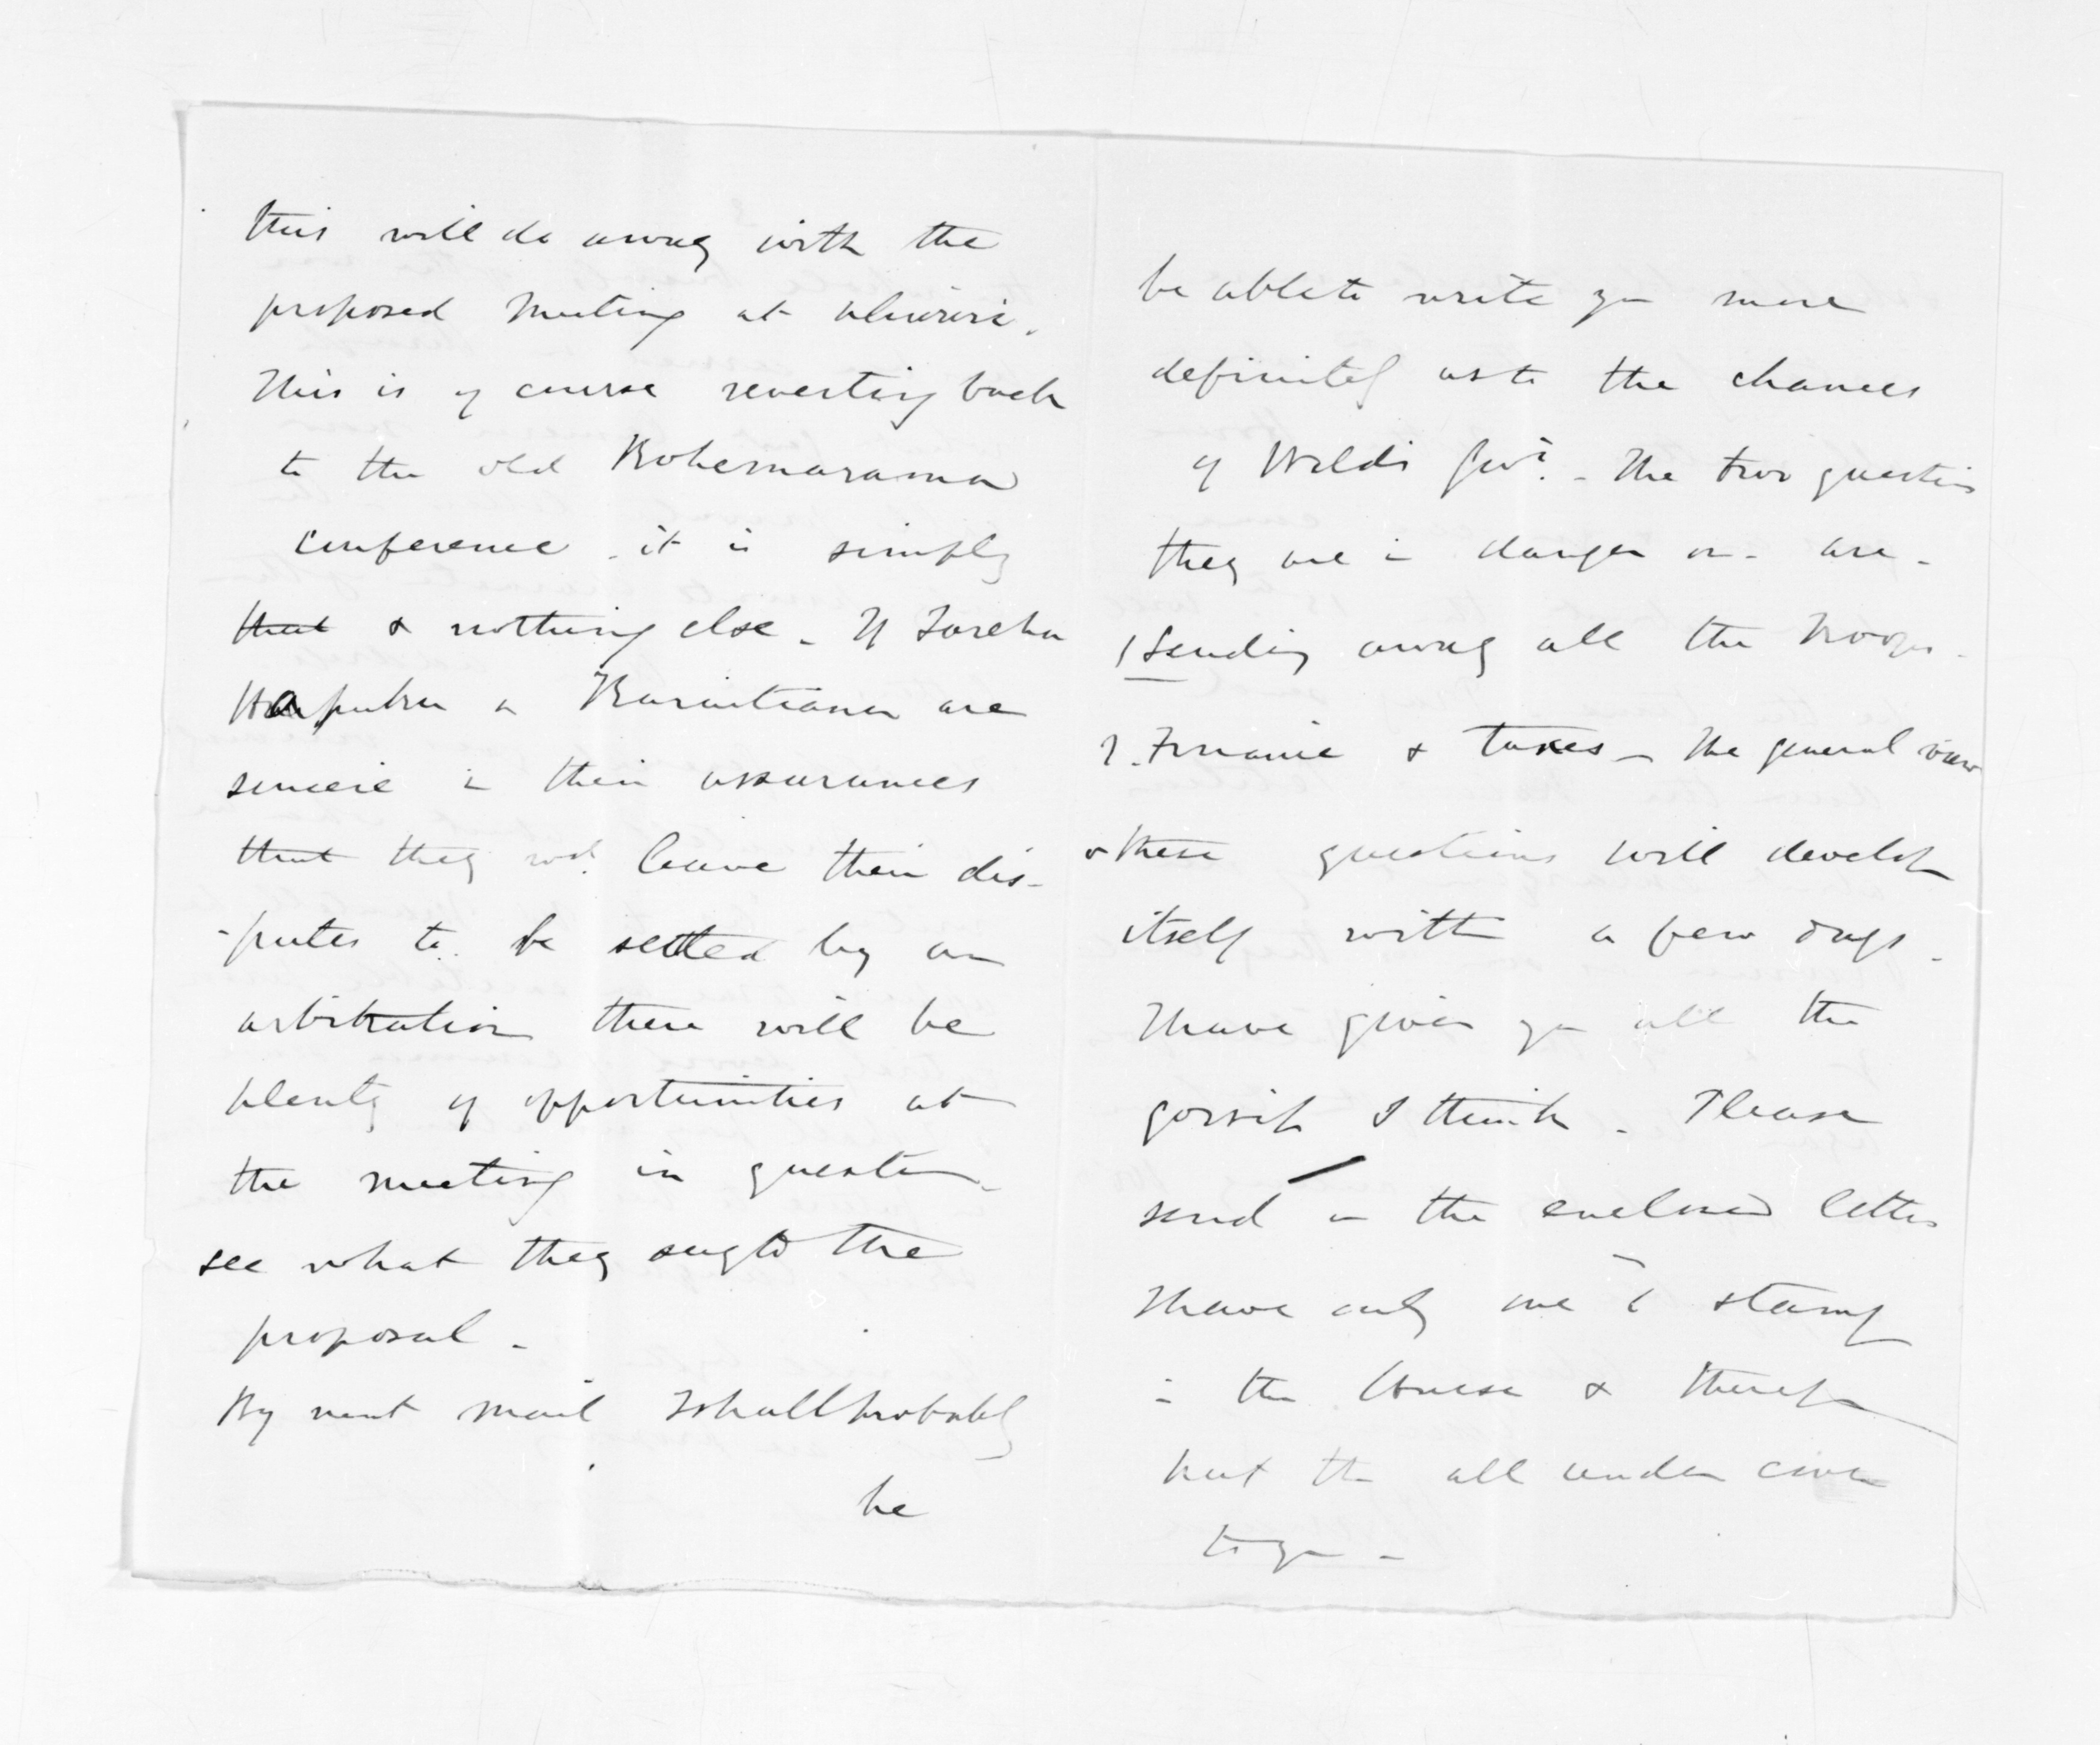 this will do away with the
proposed meeting at
This is of course reverting back
to the old Kohemarama
conference - it is simply
that & nothing else - If Tareha
Karaitiana are
sincere in their assurances
that they wd. leave their dis-
-putes to be settled by an
arbitration there will be
plenty of opportunities at
the meeting in question -
see what they say to the
proposal -
By next mail I shall probably
be
be able to write you more
definitely as to the chances
of Weld's Govt. - The two questions
they are in danger on - are -
1 Sending away all the troops -
2. Finance & taxes - The general view
these questions will develop
itself with a few days -
I have given you all the
gossip I think - Please
send on the enclosed letters
I have only one stamp
in the House & therefore
put them all under cover
to you -